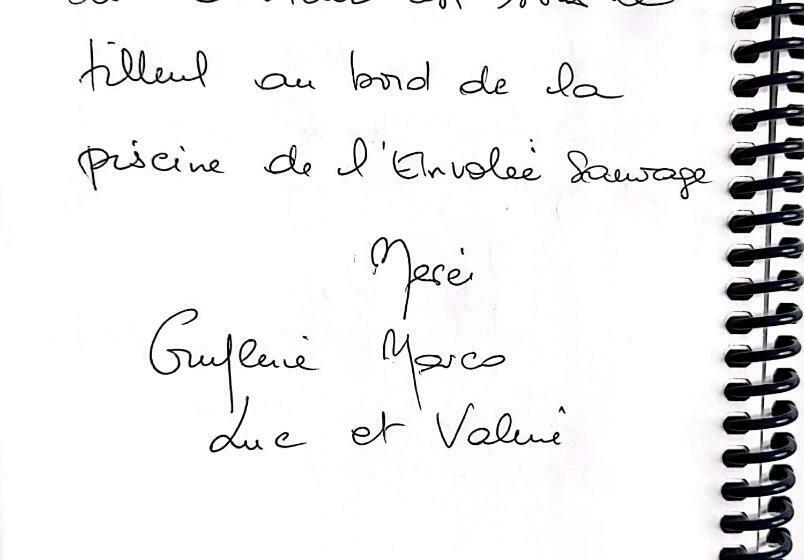 tilleul au bord de la
piscine de l'Envolée Sauvage
Merci
Guylene Marco
Luc et Valerie